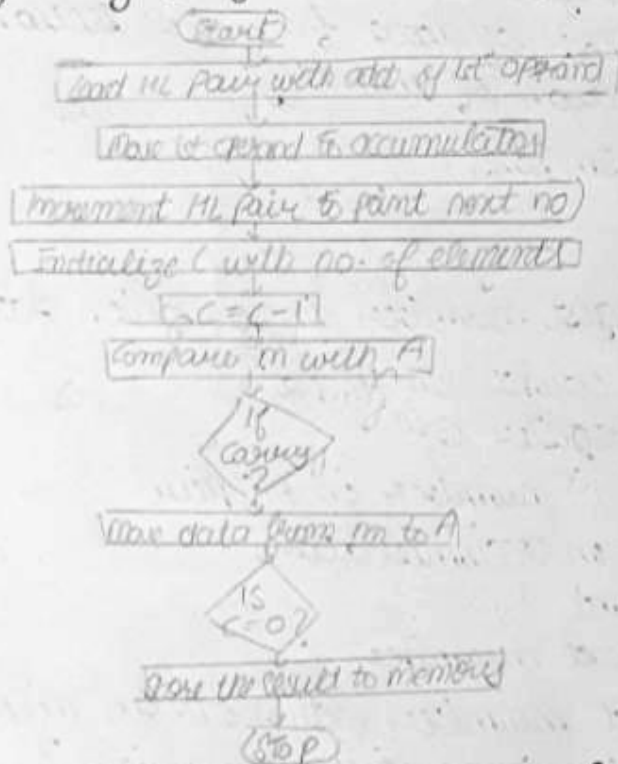 Start
Load HL pair with add. of 1st operand
Move 1st operand to accumulator
Increment HL pair to point next no
Initialize C with no. of elements
C=C-1
Compare m with A
If
carry
?
Move data from m to A
Is
C=0?
Store the result to memory
STOP